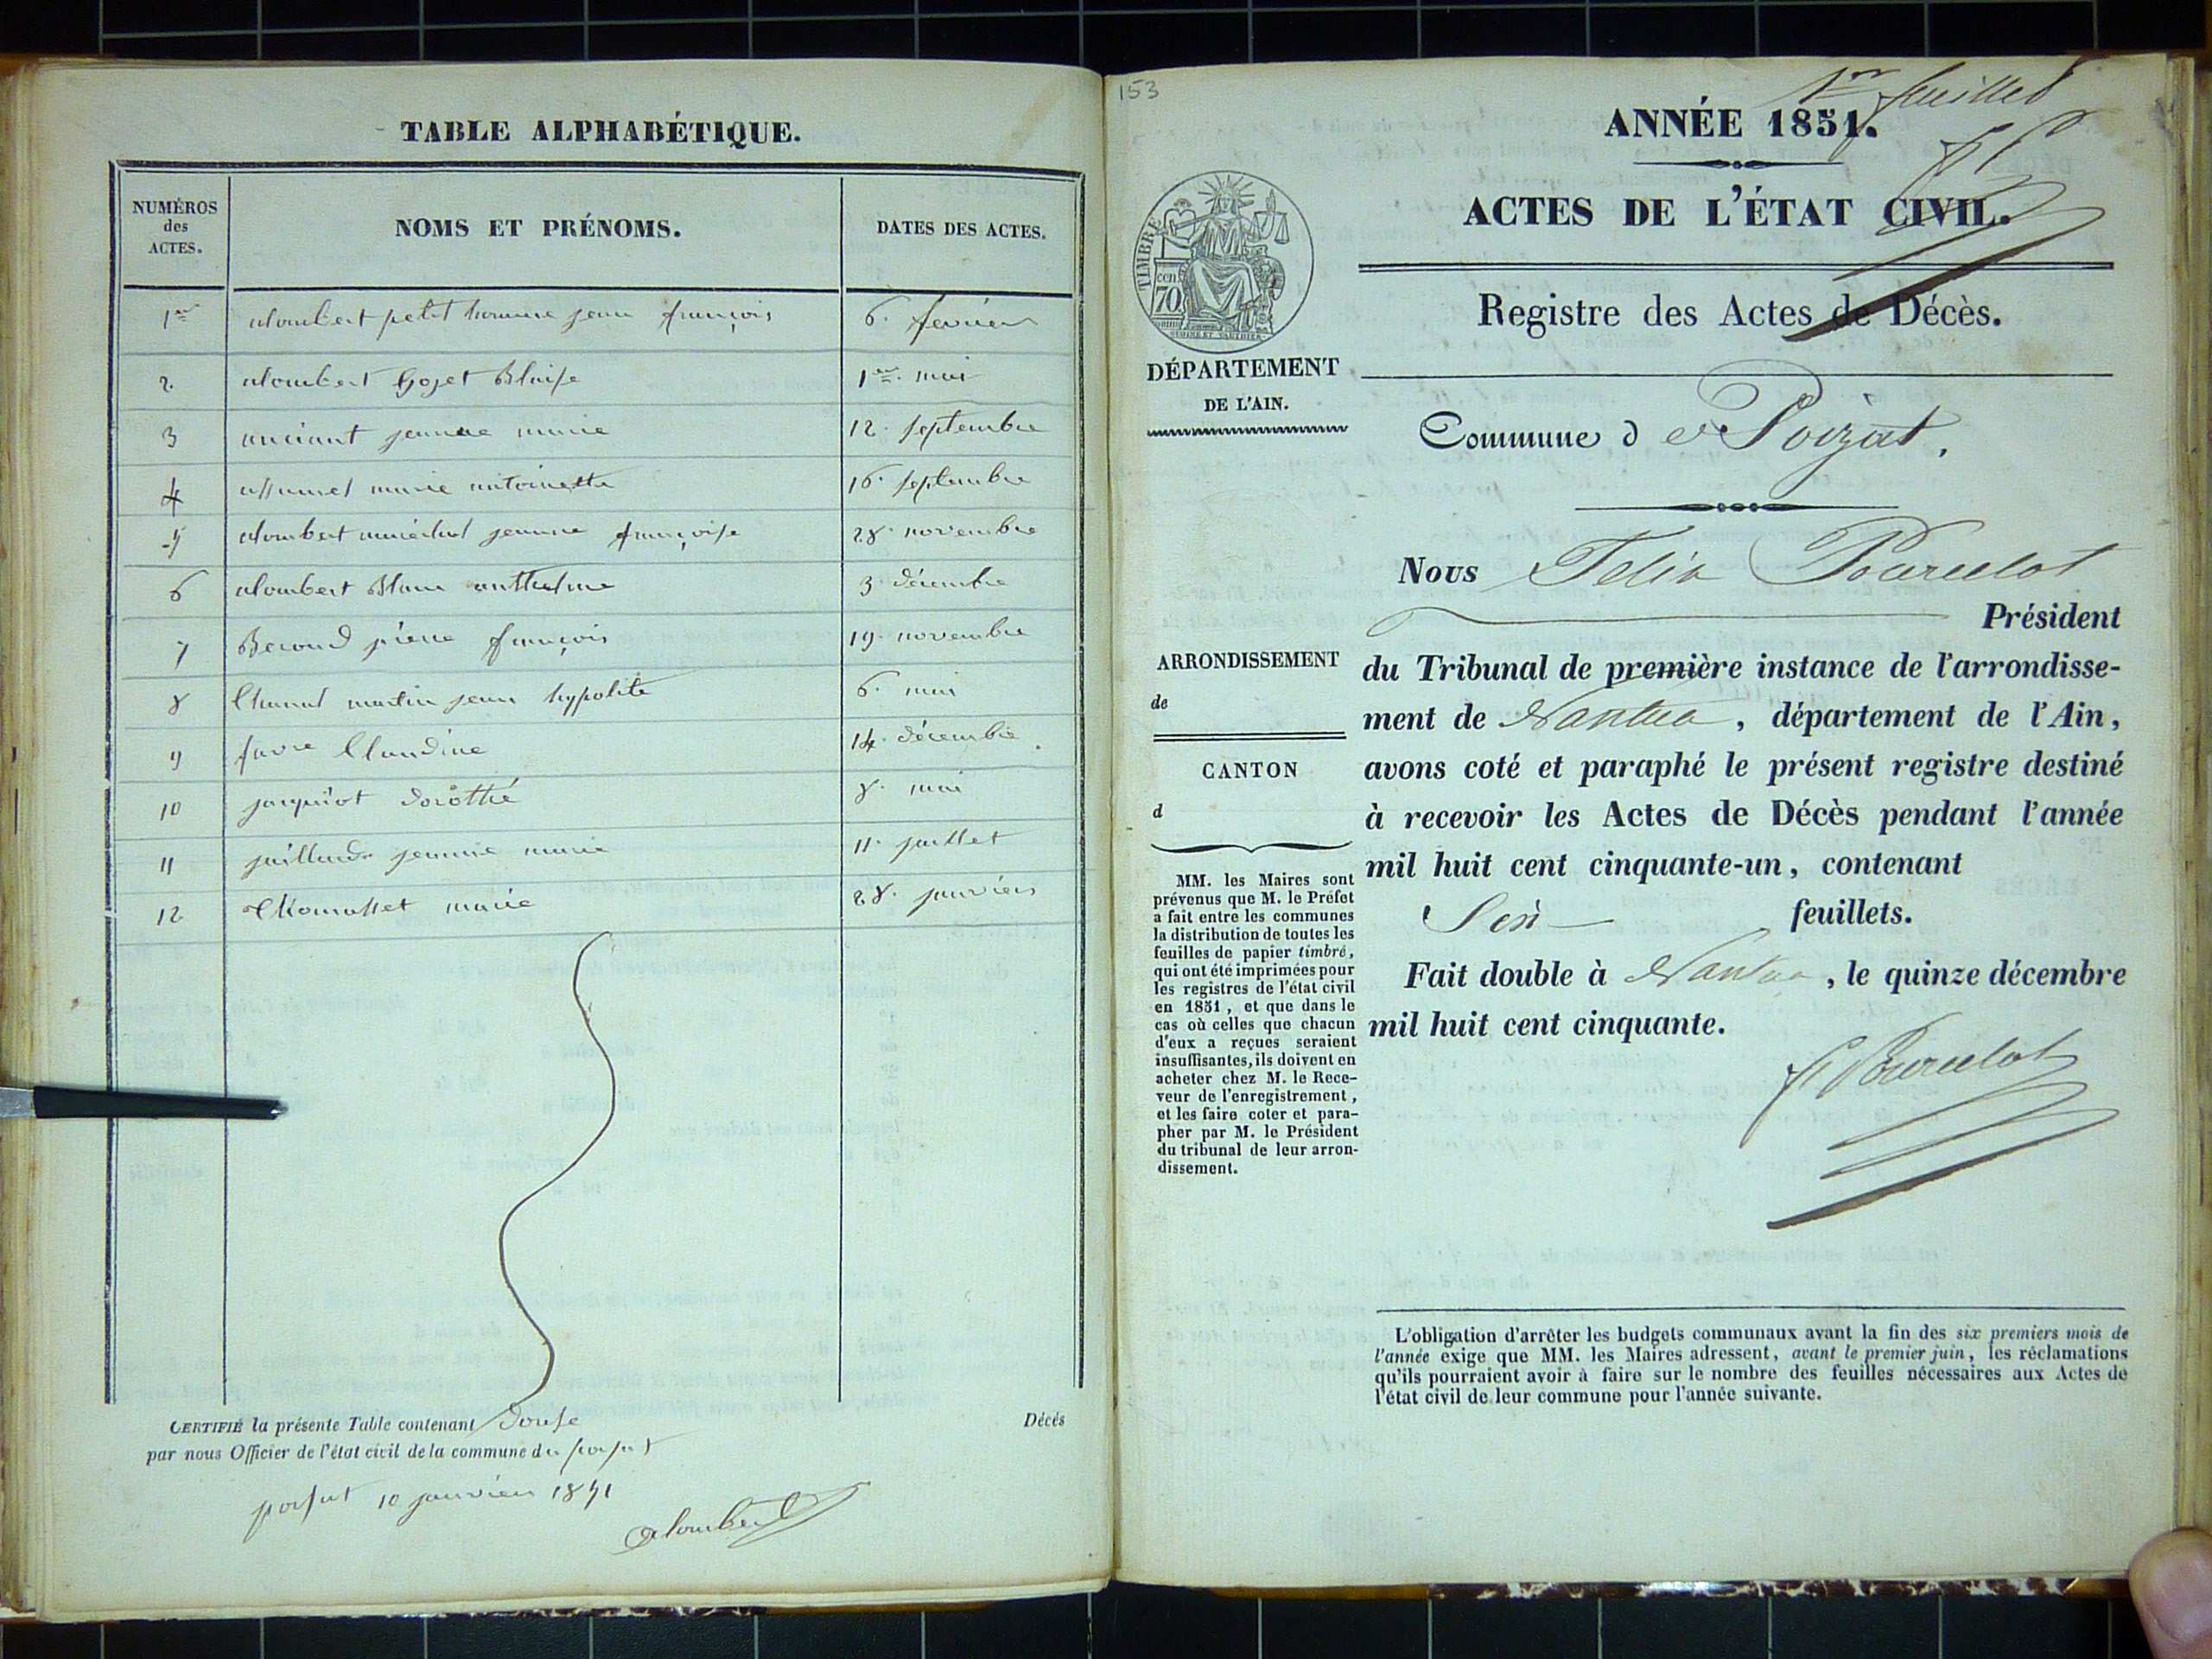 TABLE ALPHABÉTIQUE.
NUMÉROS des ACTES.
NOMS ET PRÉNOMS.
DATES DES ACTES.
1er alombert petit homme jean françois 6. fevrier
2. alombert Gojet Blaise 1er. mai
3 anciant jeanne marie 12. septembre
4 assumel marie antoinette 16. septembre
5 alombert maréchal jeanne françoise 28. novembre
6 alombert Blanc anthelme 3. décembre
7 Beroud pierre françois 19. novembre
8 Chanal martin jean hypolite 6. mai
9 favre Claudine 14. décembre.
10 jacquiot dorothé 8. mai
11 juilland jeanne marie 11. juillet
12 Thomasset marie 28. janvier
CERTIFIÉ la présente Table contenant douse Décés
par nous Officier de l'état civil de la commune du poisat
poisat 10 janvier 1851
alombert
153
1er feuillet
ANNÉE 1851.
ACTES DE L'ÉTAT CIVIL.
Registre des Actes de Décès.
TIMBRE
cen. 70
DÉPARTEMENT
DE L'AIN.
Commune de Poizat.
Nous Felix Pourcelot
Président
du Tribunal de première instance de l'arrondisse-
ment de Nantua, département de l'Ain,
avons coté et paraphé le présent registre destiné
à recevoir les Actes de Décès pendant l'année
mil huit cent cinquante-un, contenant
Six feuillets.
Fait double à Nantua, le quinze décembre
mil huit cent cinquante.
F Pourcelot
ARRONDISSEMENT
de
CANTON
d
MM. les Maires sont
prévenus que M. le Préfet
a fait entre les communes
la distribution de toutes les
feuilles de papier timbré,
qui ont été imprimées pour
les registres de l'état civil
en 1851, et que dans le
cas où celles que chacun
d'eux a reçues seraient
insuffisantes, ils doivent en
acheter chez M. le Rece-
veur de l'enregistrement,
et les faire coter et para-
pher par M. le Président
du tribunal de leur arron-
dissement.
L'obligation d'arrêter les budgets communaux avant la fin des six premiers mois de
l'année exige que MM. les Maires adressent, avant le premier juin, les réclamations
qu'ils pourraient avoir à faire sur le nombre des feuilles nécessaires aux Actes de
l'état civil de leur commune pour l'année suivante.